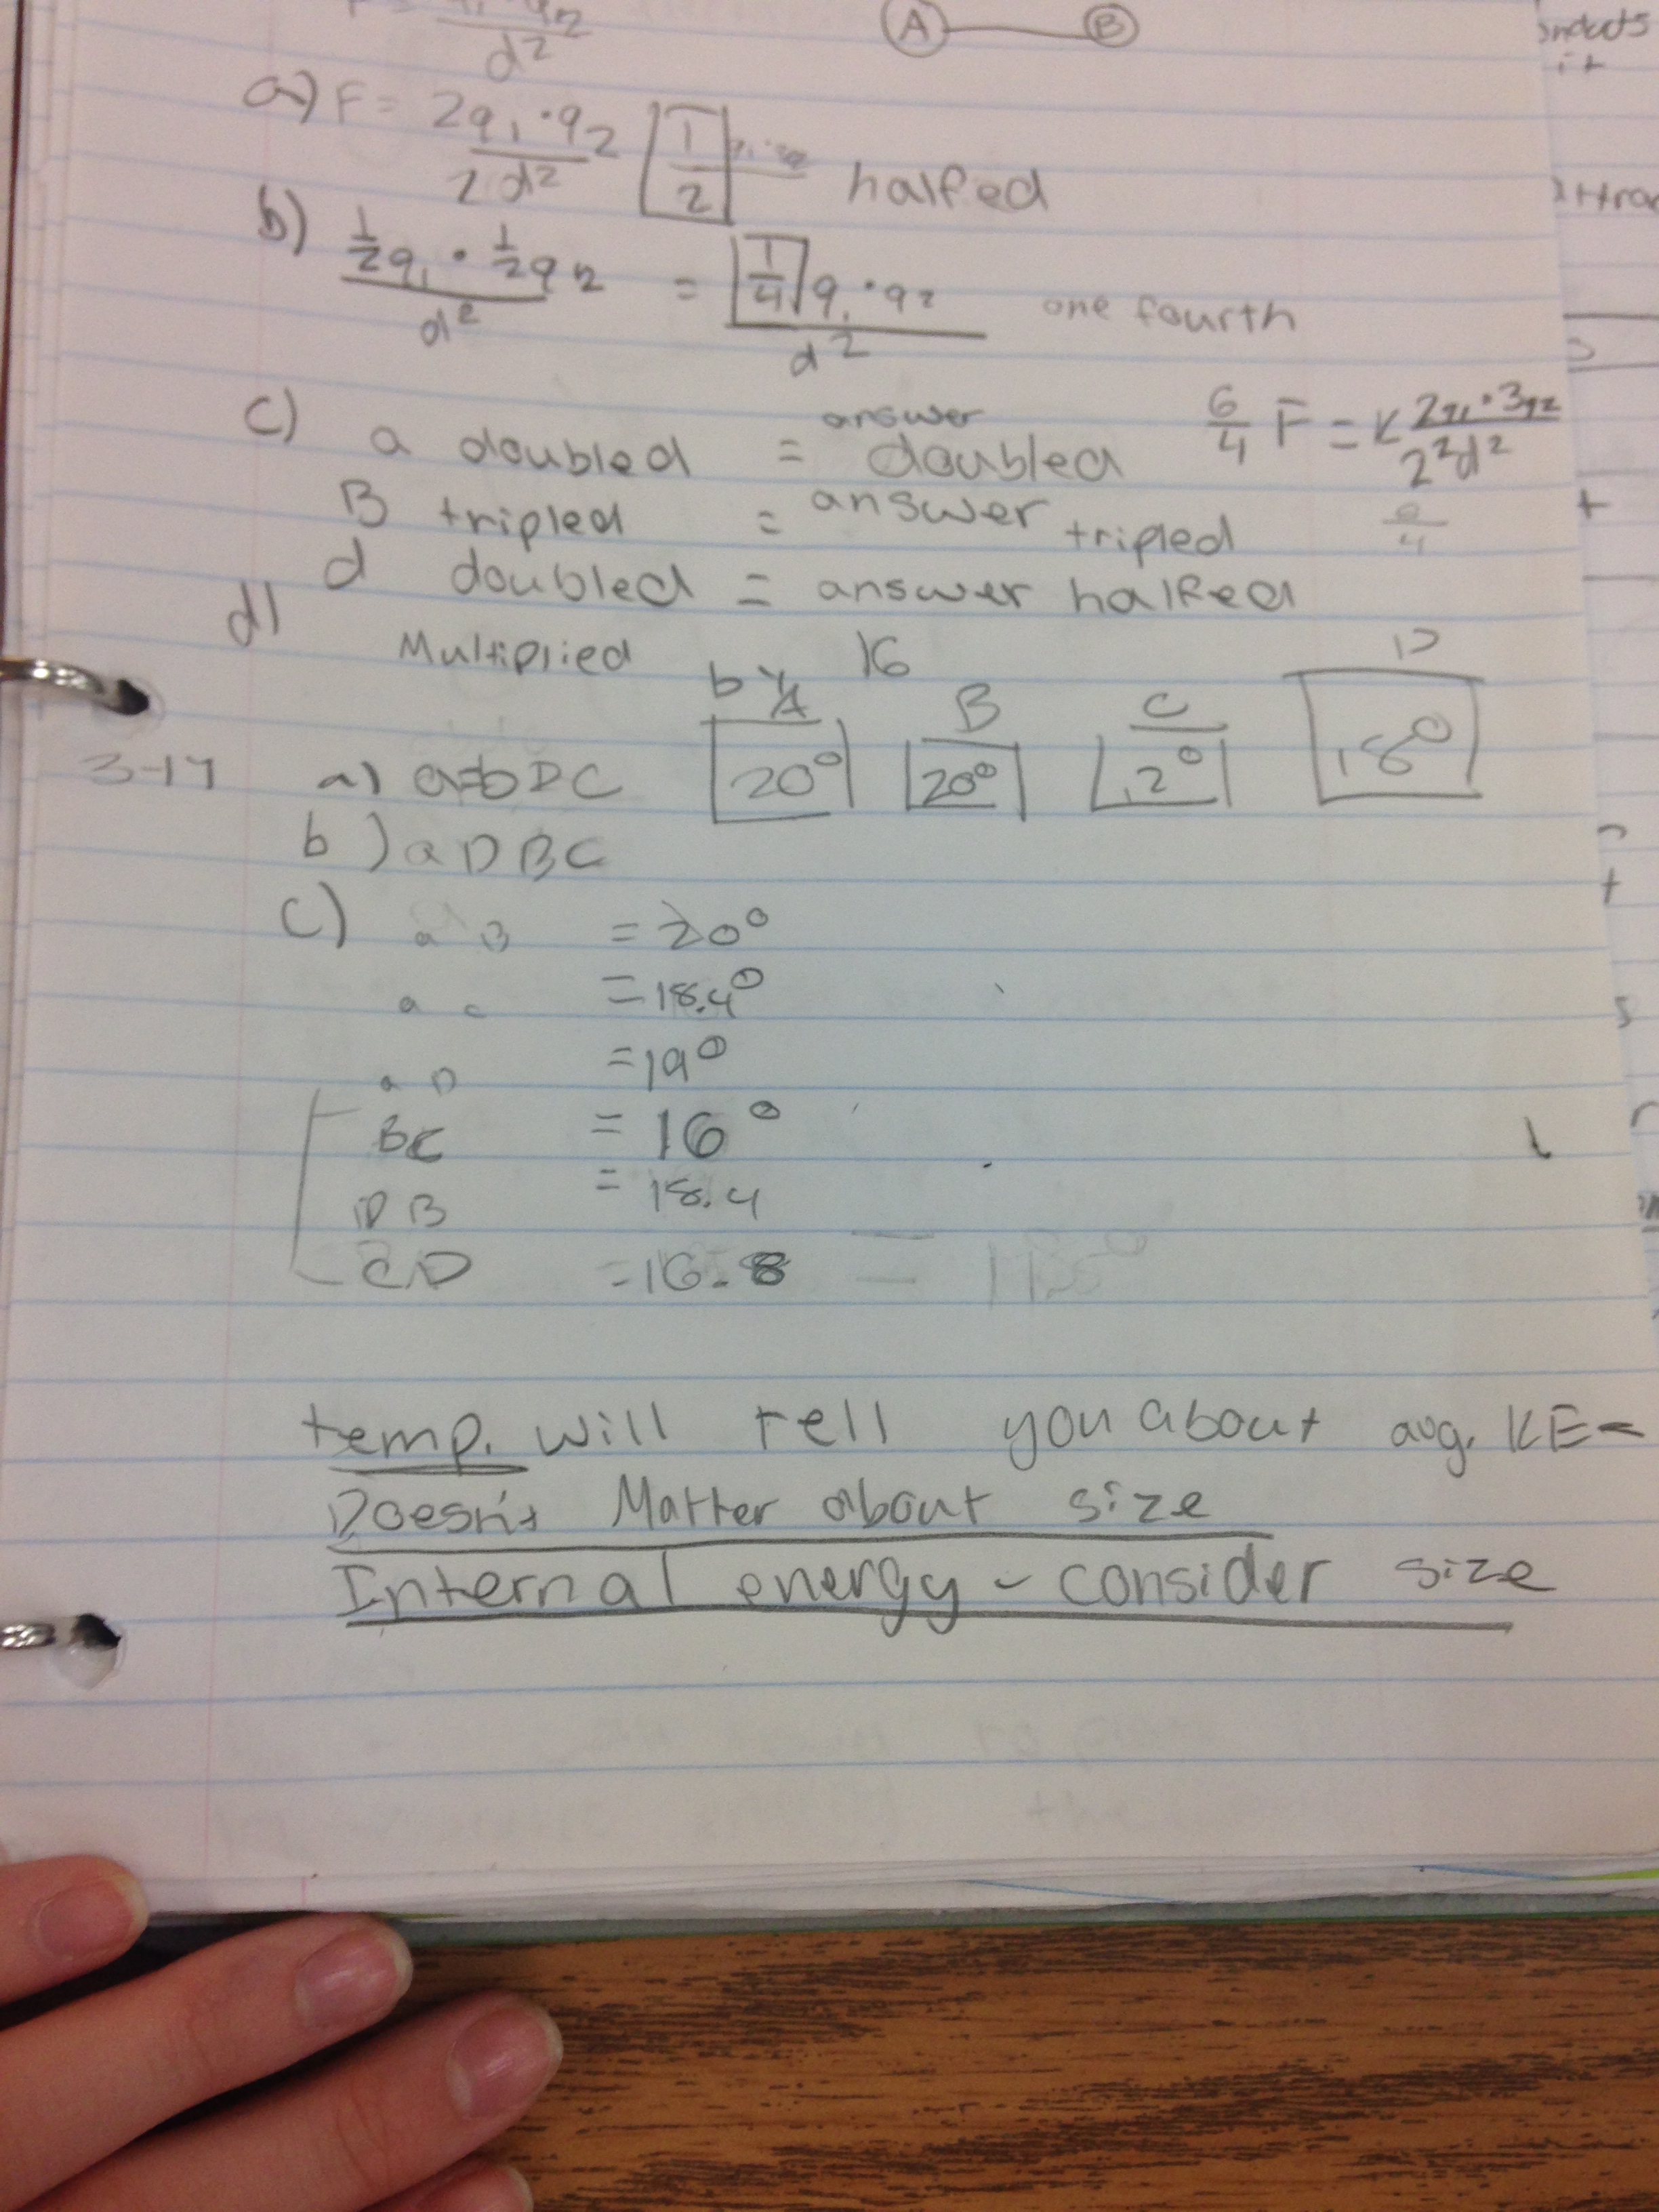 d²
A B
a) F = 2q₁·q₂ / 2d² 1/2 halfed
b) 1/2q₁ · 1/2q2 / d² = 1/4 q₁·q₂ / d² one fourth
c) a doubled = answer doubled 6/4 F = K 2q₁·3q₂ / 2²d²
B tripled = answer tripled 6/4
d doubled = answer halfed
d) Multiplied by 16
A B C D
3-17 a) a=bDC 20° 20° 12° 18°
b) aDBC
c) a B = 20°
a c = 18.4°
a D = 19°
BC = 16°
DB = 18.4
CD = 16.8
temp. will tell you about avg. KE-
Doesn't Matter about size
Internal energy - consider size